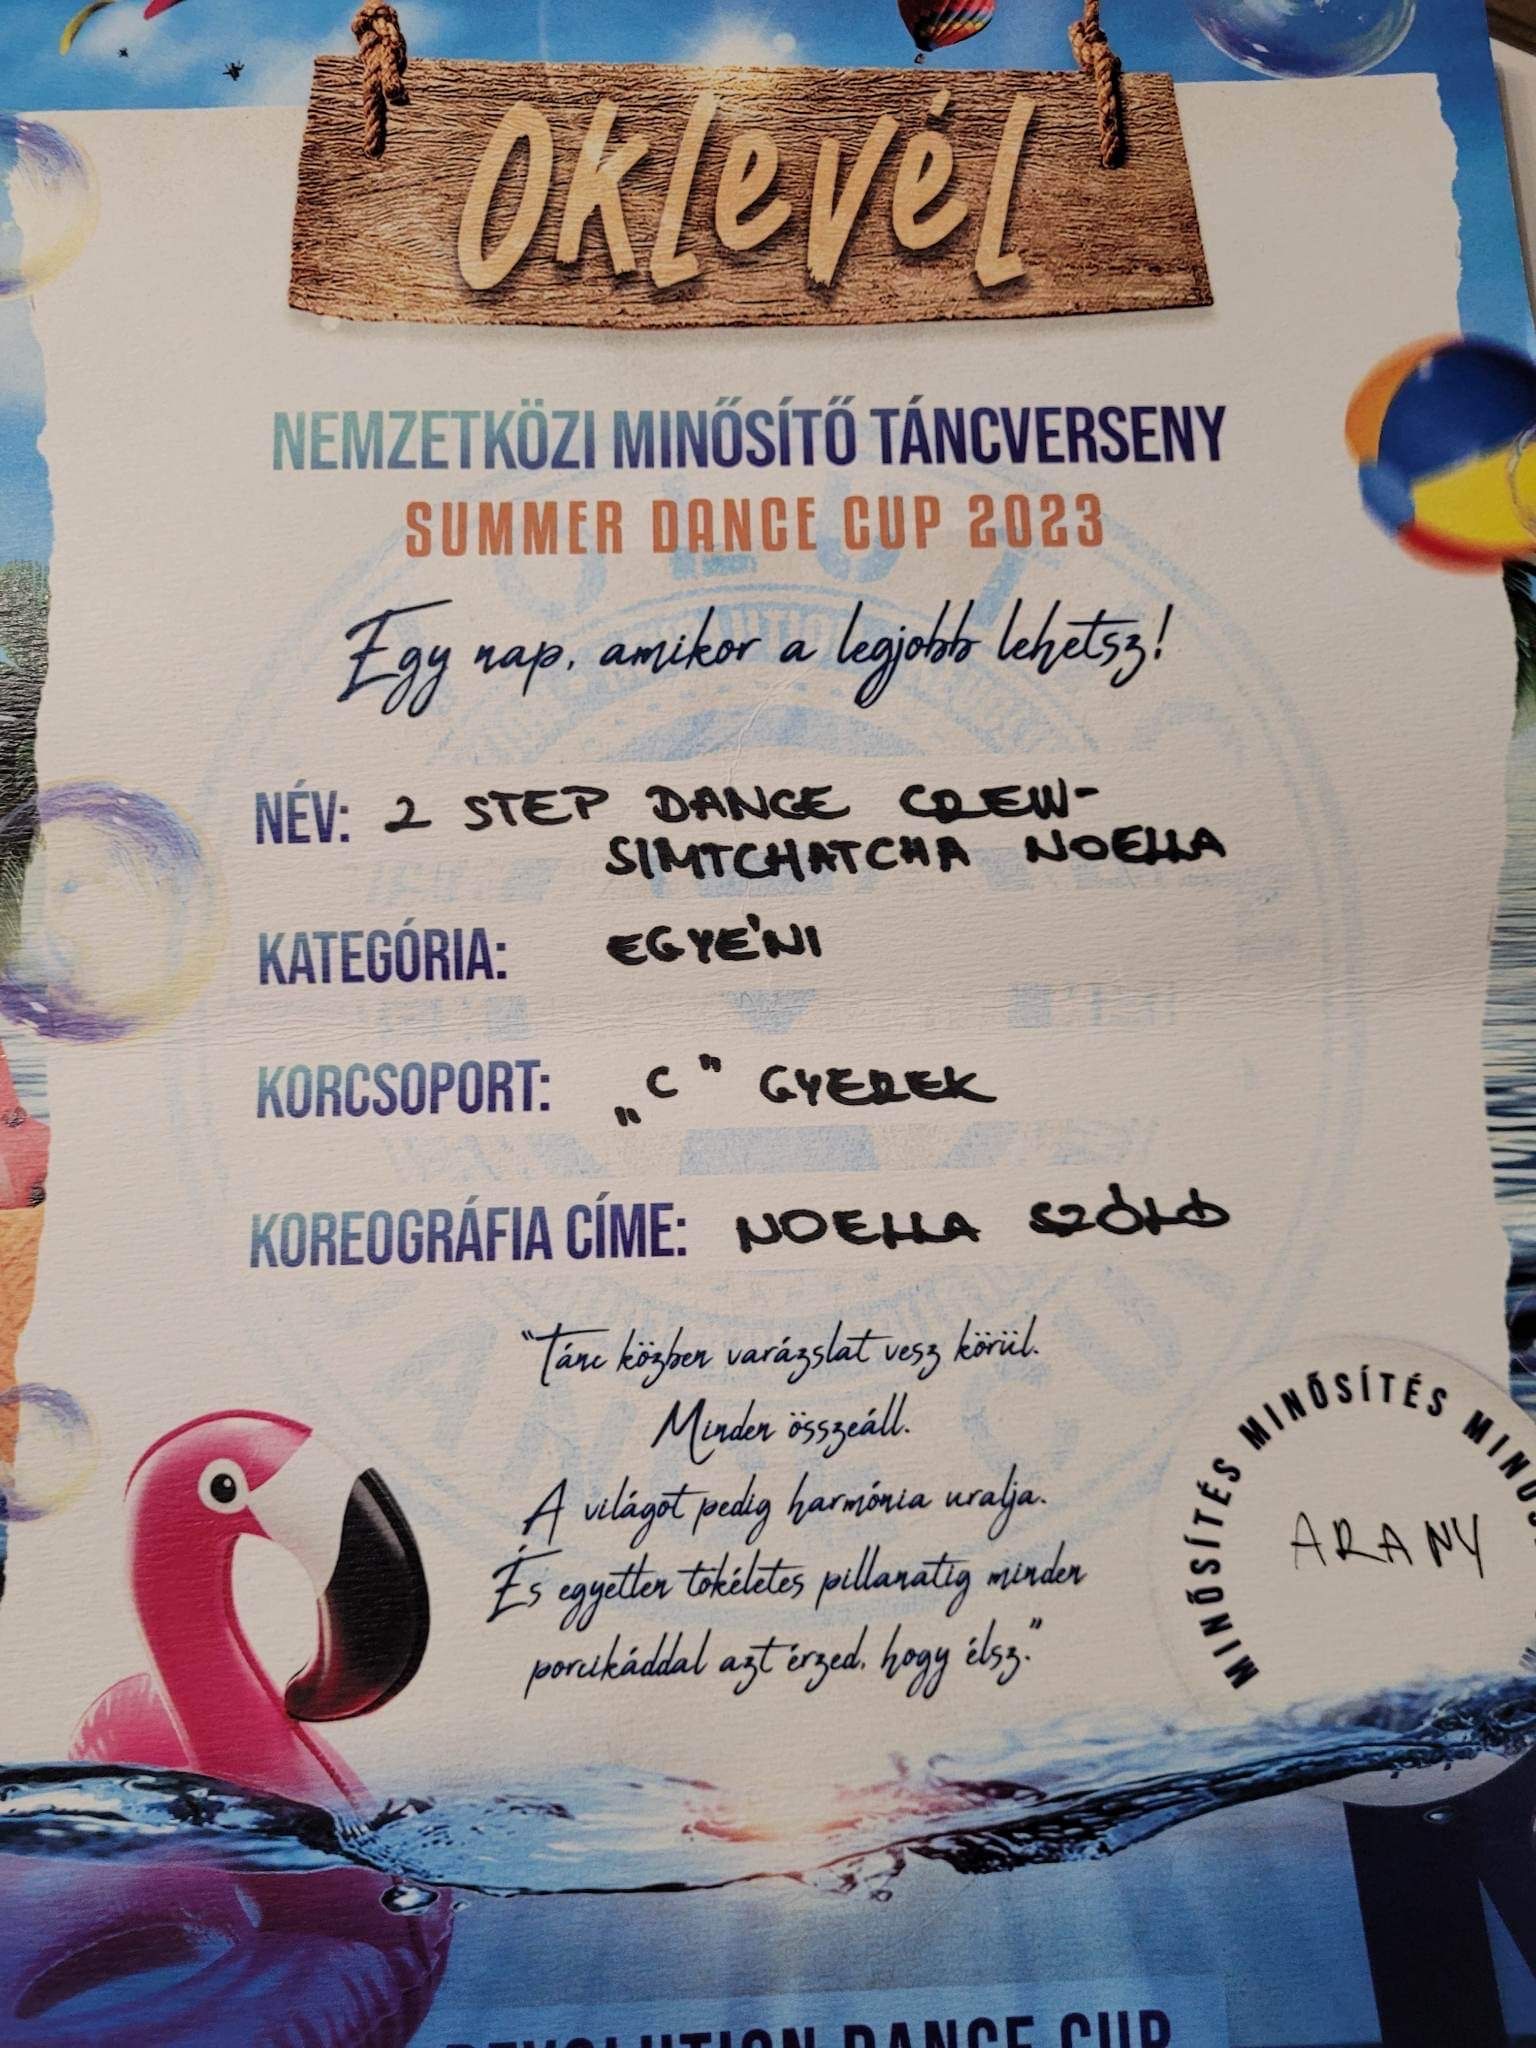 Oklevél
NEMZETKÖZI MINŐSÍTŐ TÁNCVERSENY
SUMMER DANCE CUP 2023
Egy nap, amikor a legjobb lehetsz!
NÉV: 2 STEP DANCE CREW-
SIMTCHATCHA NOELLA
KATEGÓRIA: EGYÉNI
KORCSOPORT: „C" GYEREK
KOREOGRÁFIA CÍME: NOELLA SZÓLÓ
"Tánc közben varázslat vesz körül.
Minden összeáll.
A világot pedig harmónia uralja.
És egyetlen tökéletes pillanatig minden
porcikáddal azt érzed, hogy élsz."
MINŐSÍTÉS MINŐSÍTÉS MINŐSÍTÉS
ARANY
REVOLUTION DANCE CUP